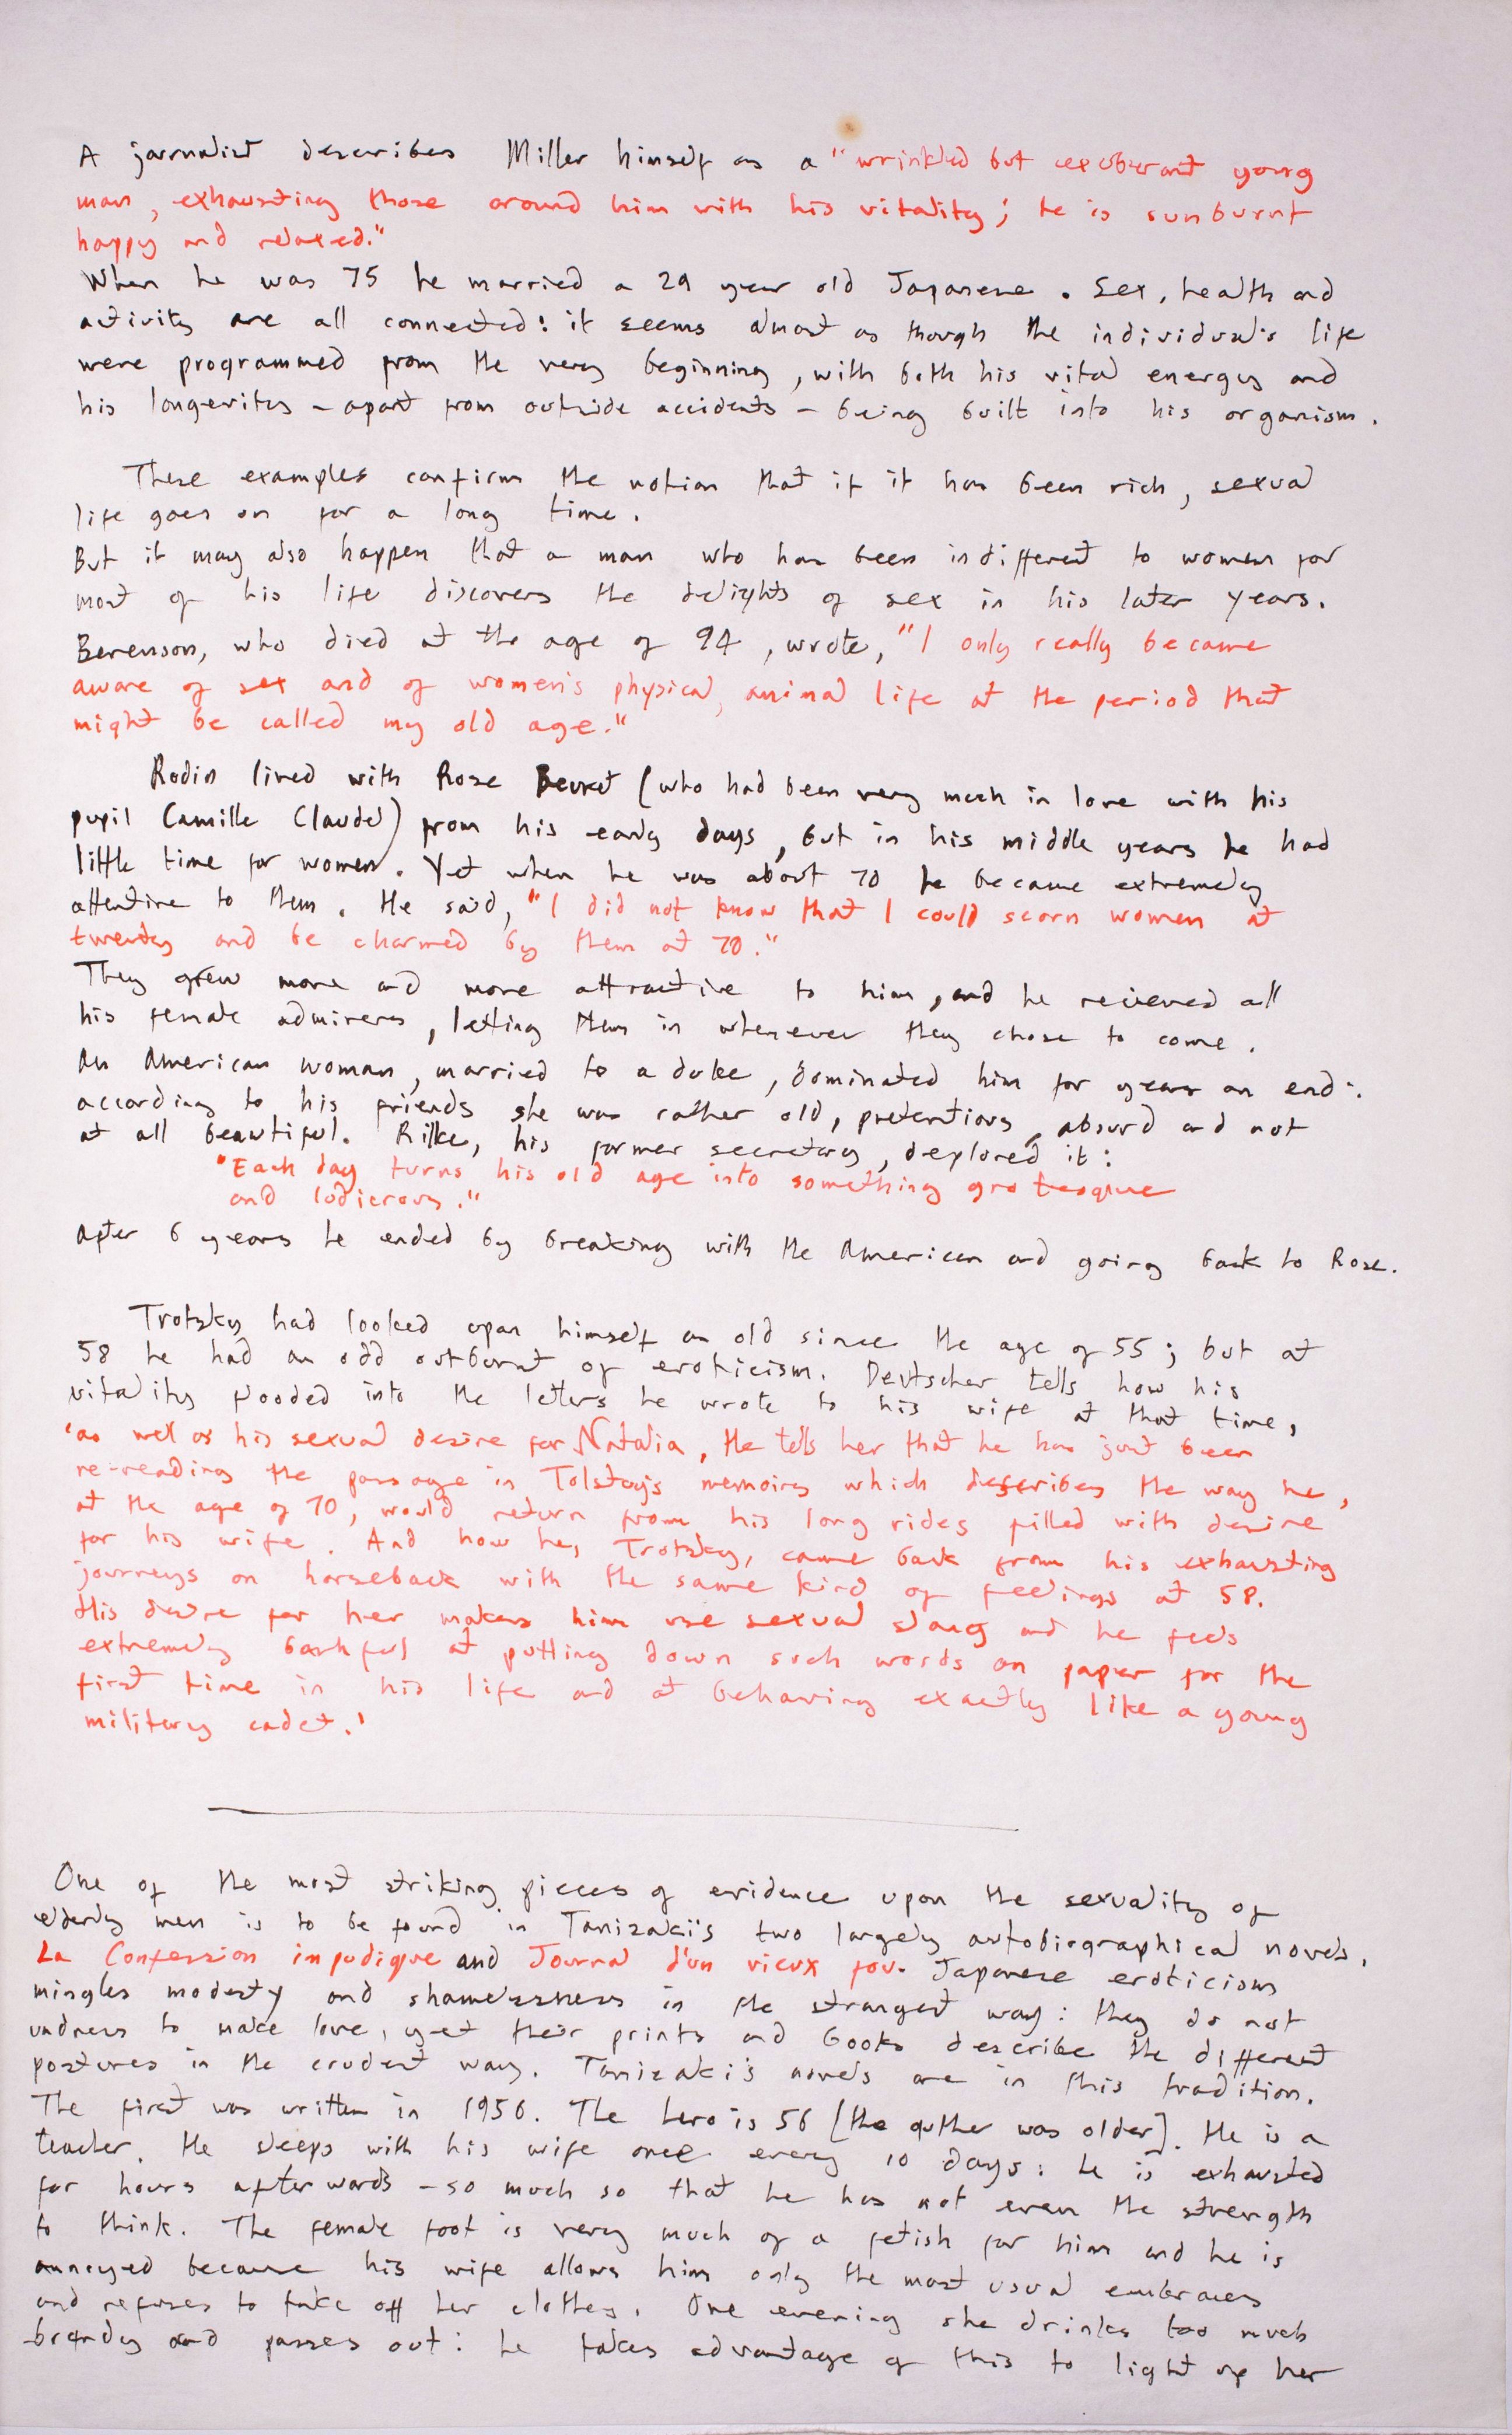 A journalist describes Miller himself as a "wrinkled but exuberant young
man, exhausting those around him with his vitality; he is sunburnt
happy and relaxed."
When he was 75 he married a 29 year old Japanese. Sex, health and
activity are all connected: it seems almost as though the individual's life
were programmed from the very beginning, with both his vital energy and
his longevity – apart from outside accidents – being built into his organism.
These examples confirm the notion that if it has been rich, sexual
life goes on for a long time.
But it may also happen that a man who has been indifferent to women for
most of his life discovers the delights of sex in his later years.
Berenson, who died at the age of 94, wrote, "I only really became
aware of sex and of women's physical, animal life at the period that
might be called my old age."
Rodin lived with Rose Beuret (who had been very much in love with his
pupil Camille Claudel) from his early days, but in his middle years he had
little time for women. Yet when he was about 70 he became extremely
attentive to them. He said, "I did not know that I could scorn women at
twenty and be charmed by them at 70."
They grew more and more attractive to him, and he recieved all
his female admirers, letting them in whenever they chose to come.
An American woman, married to a duke, dominated him for years on end:
according to his friends she was rather old, pretentious, absurd and not
at all beautiful. Rilke, his former secretary, deplored it:
"Each day turns his old age into something grotesque
and ludicrous."
After 6 years he ended by breaking with the American and going back to Rose.
Trotsky had looked upon himself as old since the age of 55; but at
58 he had an odd outburst of eroticism. Deutscher tells how his
vitality flooded into the letters he wrote to his wife at that time,
'as well as his sexual desire for Natalia. He tells her that he has just been
re-reading the passage in Tolstoy's memoirs which describes the way he,
at the age of 70, would return from his long rides filled with desire
for his wife. And how he, Trotsky, came back from his exhausting
journeys on horseback with the same kind of feelings at 58.
His desire for her makes him use sexual slang and he feels
extremely bashful at putting down such words on paper for the
first time in his life and at behaving exactly like a young
military cadet.'
One of the most striking pieces of evidence upon the sexuality of
elderly men is to be found in Tanizaki's two largely autobiographical novels,
La Confession impudique and Journal d'un vieux fou. Japanese eroticism
mingles modesty and shamelessness in the strangest way: they do not
undress to make love, yet their prints and books describe the different
postures in the crudest way. Tanizaki's novels are in this tradition.
The first was written in 1956. The hero is 56 [the auther was older]. He is a
teacher. He sleeps with his wife once every 10 days: he is exhausted
for hours afterwards – so much so that he has not even the strength
to think. The female foot is very much of a fetish for him and he is
annoyed because his wife allows him only the most usual embraces
and refuses to take off her clothes. One evening she drinks too much
brandy and passes out: he takes advantage of this to light up her